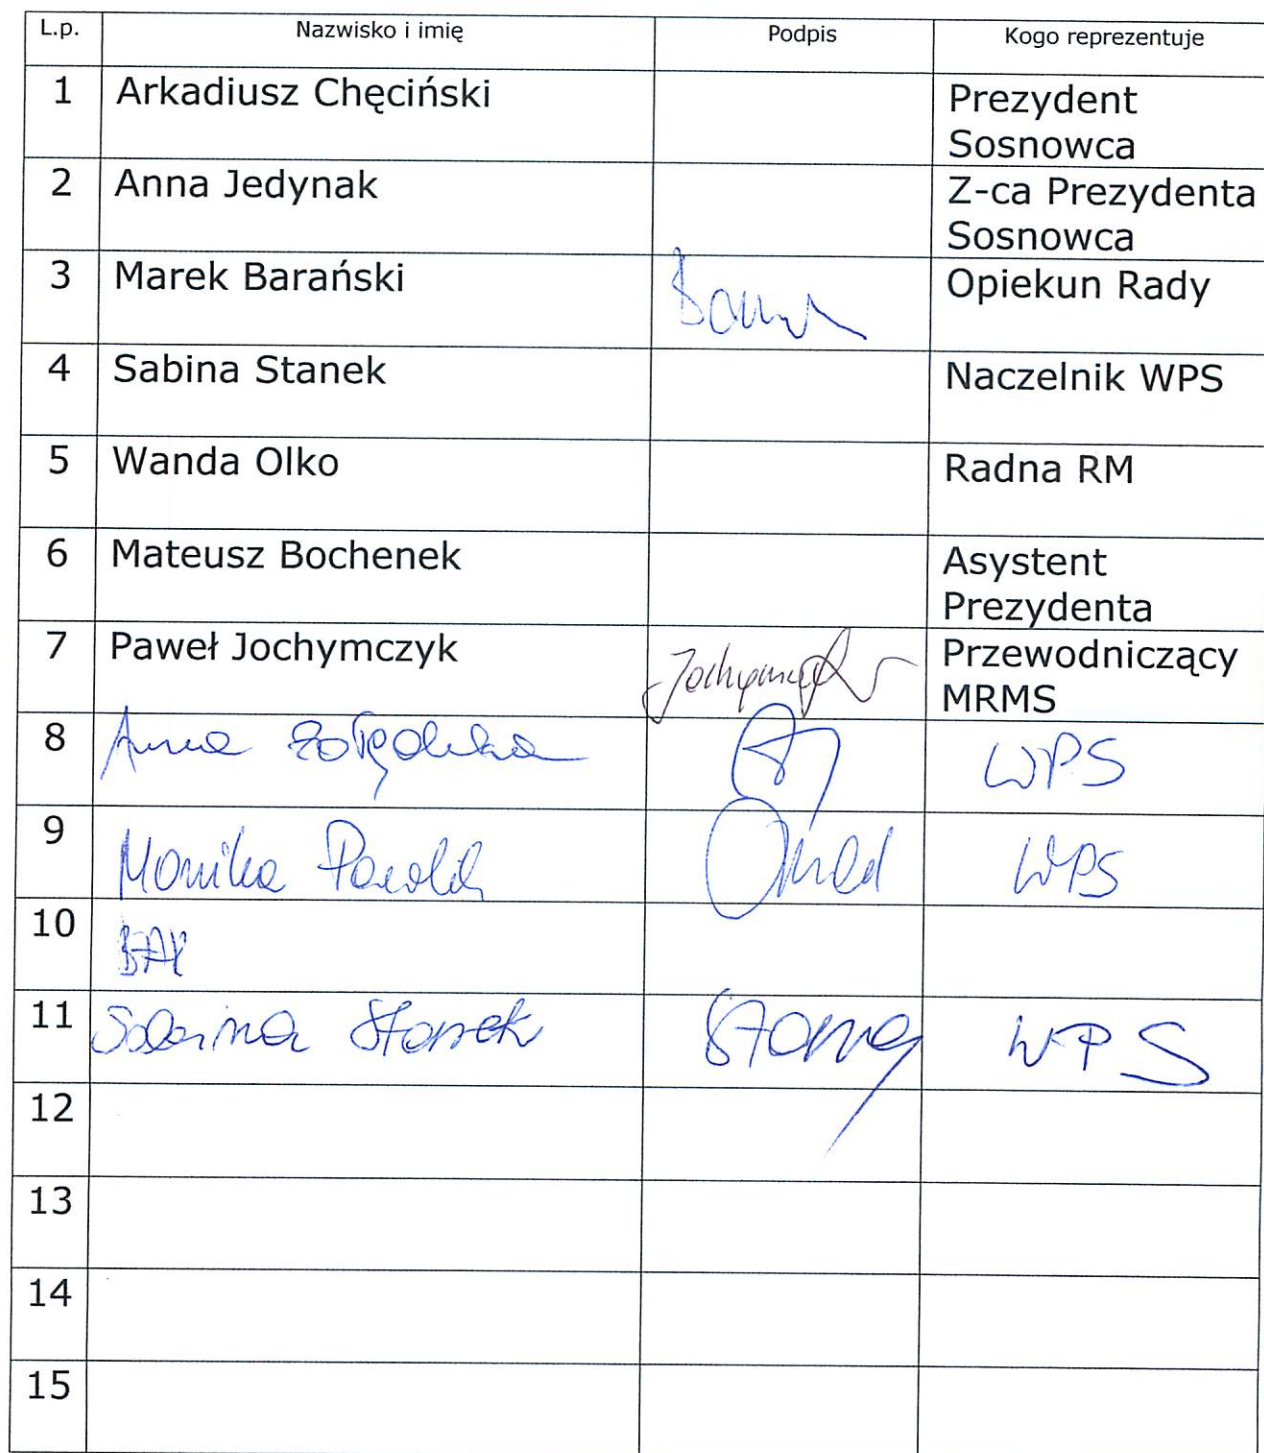 L.p. Nazwisko i imię Podpis Kogo reprezentuje
1 Arkadiusz Chęciński Prezydent
Sosnowca
2 Anna Jedynak Z-ca Prezydenta
Sosnowca
3 Marek Barański Opiekun Rady
4 Sabina Stanek Naczelnik WPS
5 Wanda Olko Radna RM
6 Mateusz Bochenek Asystent
Prezydenta
7 Paweł Jochymczyk Jochymczyk Przewodniczący
MRMS
8 Anna WPS
9 Monika WPS
10
11 Sabina Stanek WPS
12
13
14
15